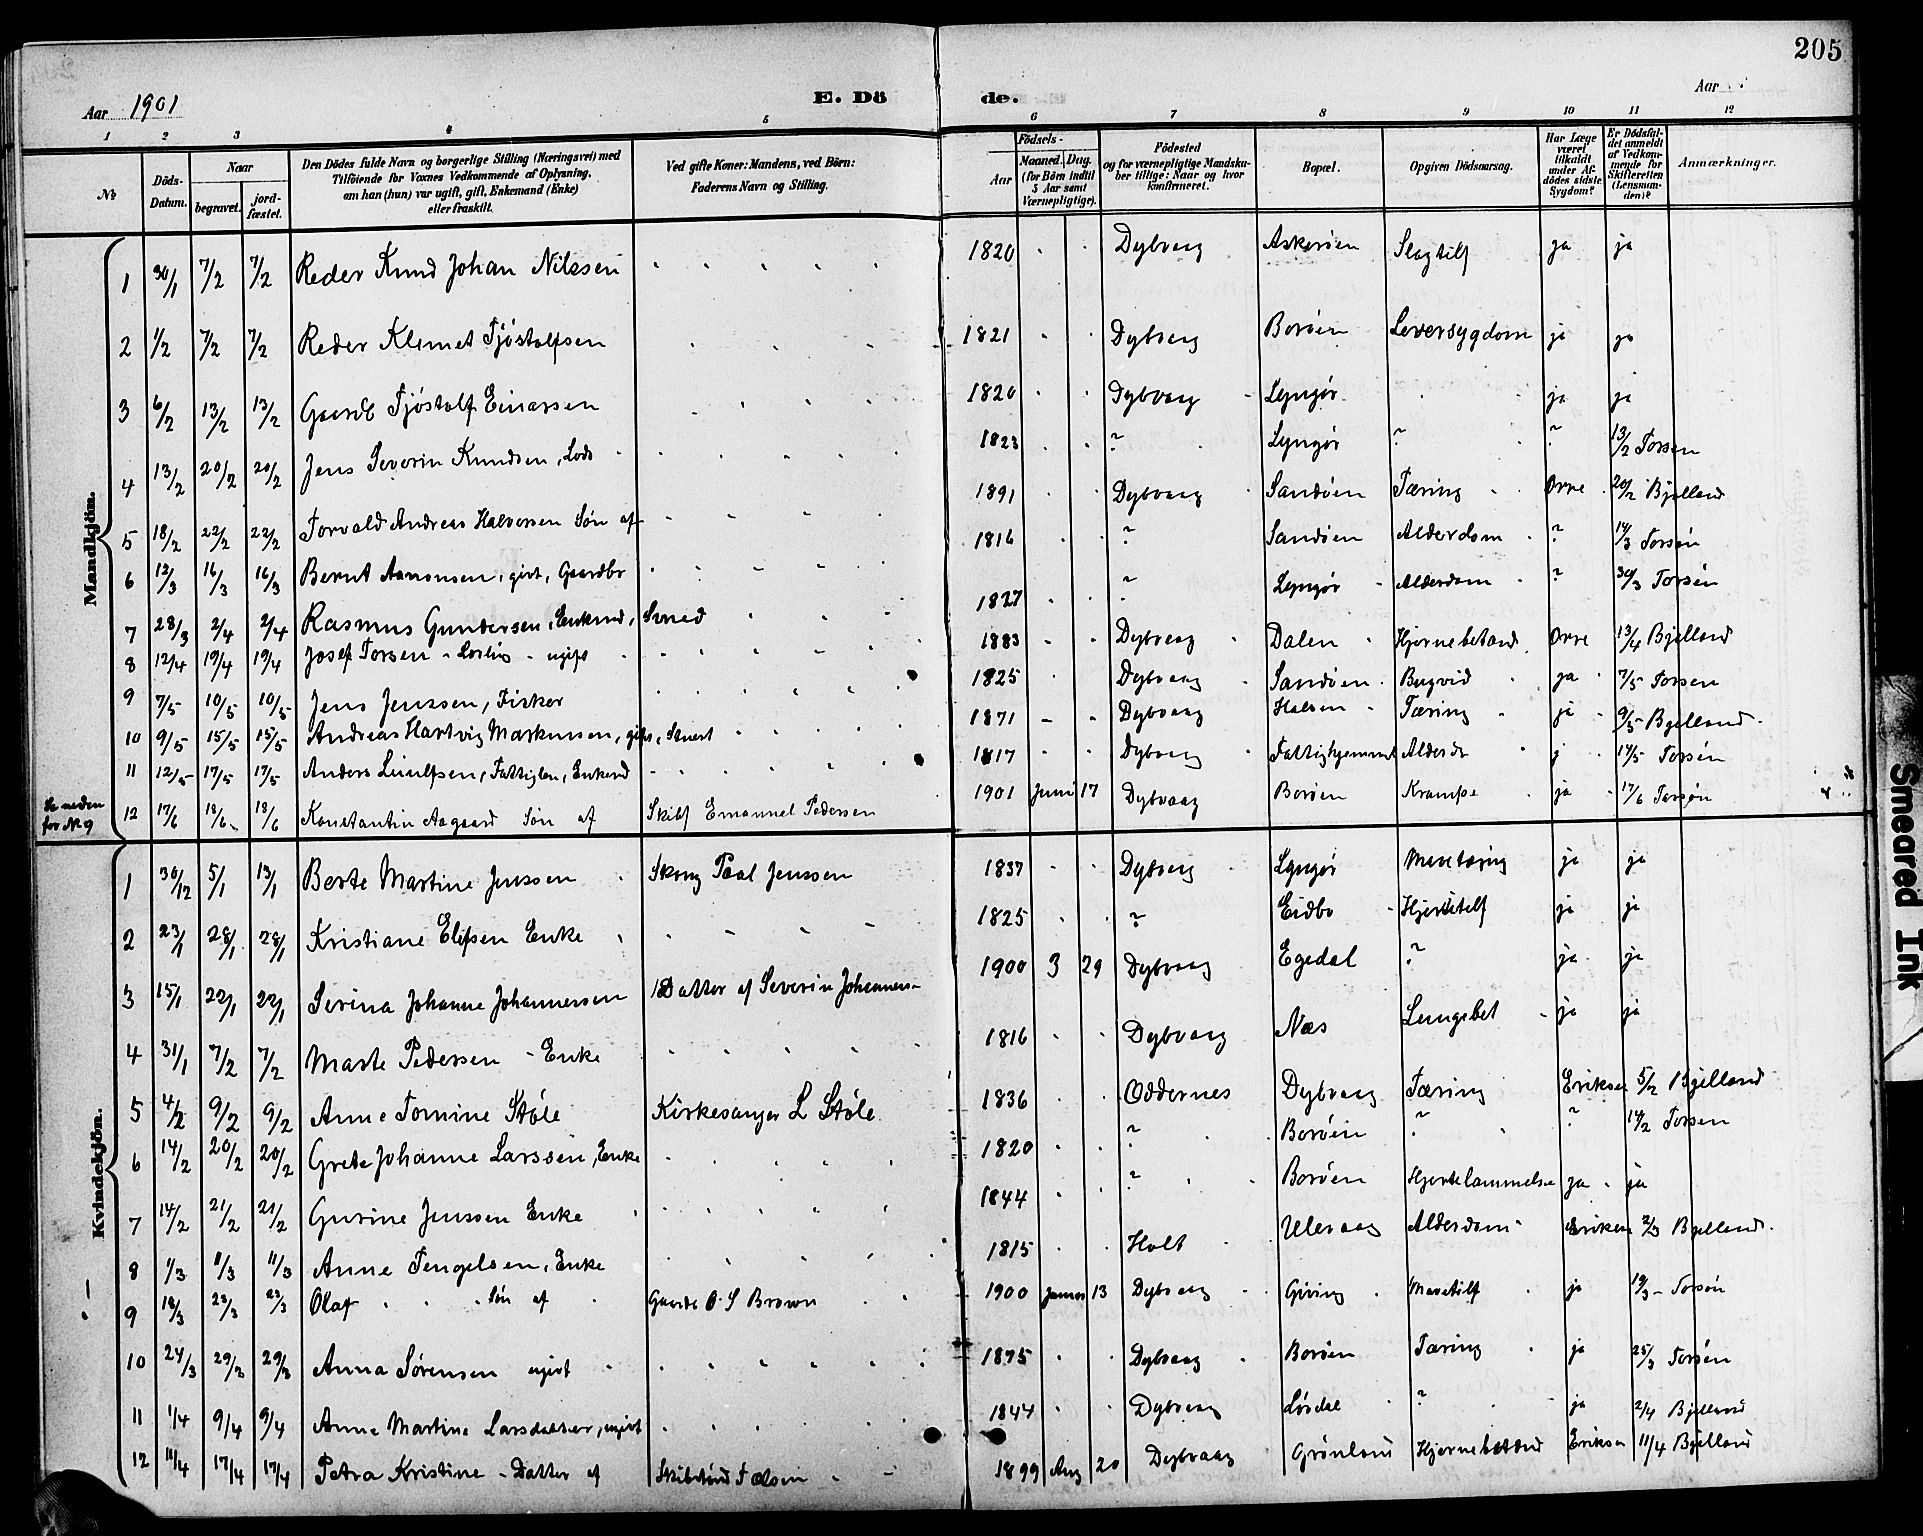 205
Aar 1901 E. Dö de. Aar
1 2 3 4 5 6 7 8 9 10 11 12
№ Döds-Datum. Naar begravet. jord-fæstet. Den Dödes fulde Navn og borgerlige Stilling (Næringsvei) med Tilföiende for Voxnes Vedkommende af Oplysning, om han (hun) var ugift, gift, Enkemand (Enke) eller fraskilt. Ved gifte Koner: Mandens, ved Börn: Faderens Navn og Stilling. Födsels- Aar Maaned. Dag. (for Börn indtil 5 Aar samt Værnepligtige). Födested og for værnepligtige Mandskaber tillige: Naar og hvor konfirmeret. Bopæl. Opgiven Dödsaarsag. Har Læge været tilkaldt under Afdödes sidste Sygdom? Er Dödsfaldet anmeldt af Vedkommende for Skifteretten (Lensmanden)? Anmærkninger.
Mandkjön.
1 30/1 7/2 7/2 Reder Knud Johan Nilssen 1820 Dybvaag Askerøen Slagtilf ja ja
2 1/2 7/2 7/2 Reder Klemet Tjøstolfsen 1821 Dybvaag Borøen Leversygdom ja ja
3 6/2 13/2 13/2 Gaardb Tjøstolf Einarsen 1820 Dybvaag Lyngør ja ja
4 13/2 20/2 20/2 Jens Severin Knudsen, Lods 1823 ? Lyngør ? ? 13/2 Torsen
5 18/2 22/2 22/2 Torvald Andreas Halvorsen Søn af 1891 Dybvaag Sandøen Tæring Orre 20/2 Bjelland
6 12/3 16/3 16/3 Bernt Aanonsen, gift, Gaardbr 1816 ? Sandøen Alderdom ? 14/3 Torsøn
7 28/3 2/4 2/4 Rasmus Gundersen, Enkmd, Smed 1827 ? Lyngør Alderdom ? 30/3 Torsén
8 12/4 19/4 19/4 Josef Torsen - Losliig - ugift 1883 Dybvaag Dalen Hjernebetænd Orre 13/4 Bjelland
9 7/5 10/5 10/5 Jens Jenssen, Fisker 1825 Dybvaag Sandøen Bugvrid ja 7/5 Torsen
10 9/5 15/5 15/5 Andreas Hartvig Markussen, gift, Stuert 1871 Dybvaag Halsen Tæring ja 9/5 Bjelland
11 12/5 17/5 17/5 Anders Leiulfsen, Fattiglem, Enkemd 1817 Dybvaag Fattighjemmet Alderd j 14/5 Torsén
Se neden for Nr 9
12 17/6 18/6 18/6 Konstantin Aagaard Søn af Skibsf Emanuel Pedersen 1901 Juni 17 Dybvaag Borøen Krampe ja 17/6 Torsøn
Kvindekjön.
1 30/12 5/1 13/1 Berte Martine Jenssen Skomg Paal Jenssen 1837 Dybvaag Lyngør Mavetæring ja ja
2 23/1 28/1 28/1 Kristiane Elefsen Enke 1825 ? Eidbo Hjertetilf ja ja
3 15/1 22/1 22/1 Serina Johanne Johannersen Datter af Severin Johannes- 1900 3 29 Dybvaag Egedal ? ja ja
4 31/1 7/2 7/2 Marte Pedersen - Enke 1816 Dybvaag Næs Lungebet ja ja
5 4/2 9/2 9/2 Anne Tomine Støle Kirkesanger L Støle 1836 Oddernes Dybvaag Tæring Eriksen 5/2 Bjelland
6 14/2 20/2 20/2 Grete Johanne Larssen, Enke 1820 ? Borøen ? ? 14/2 Torsen
7 14/2 21/2 21/2 Gurine Jenssen Enke 1844 ? Borøen Hjertelammelse ja ja
8 1/3 11/3 11/3 Anne Tengelsen, Enke 1815 Holt Ulevaag Alderdom Eriksen 2/3 Bjelland
9 18/3 23/3 23/3 Olaf Søn af Gaardb O. S Brown 1900 Januar 13 Dybvaag Giving Mavetilf ja 19/3 - Torsøn
10 24/3 29/3 29/3 Anna Sørensen ugift 1875 Dybvaag Borøen Tæring ja 25/3 Torsén
11 1/4 9/4 9/4 Anne Martine Larsdatter, ugift 1844 Dybvaag Lørdal ? ja 2/4 Bjelland
12 11/4 17/4 17/4 Petra Kristine - Datter af Skibstømd Tælsen 1899 Aug 20 Dybvaag Grønland Hjernebetænd Eriksen 11/4 Bjelland
Smeared Ink